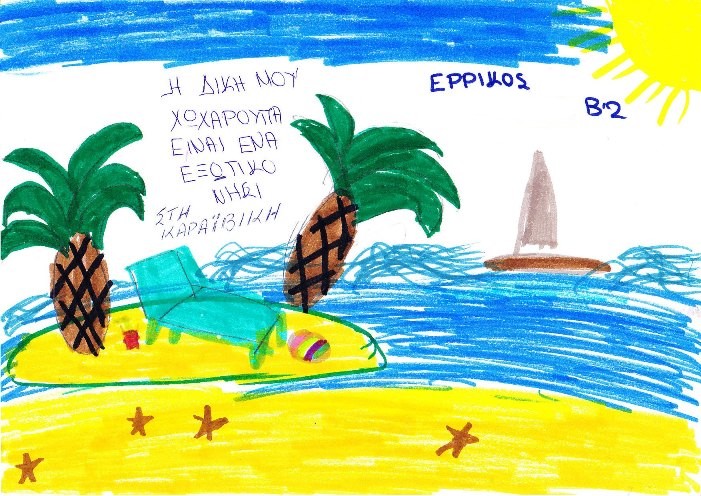 Η ΔΙΚΗ ΜΟΥ
ΧΩΧΑΡΟΥΠΑ
ΕΙΝΑΙ ΕΝΑ
ΕΞΩΤΙΚΟ
ΝΗΣΙ
ΣΤΗ
ΚΑΡΑΪΒΙΚΗ
ΕΡΡΙΚΟΣ
Β'2